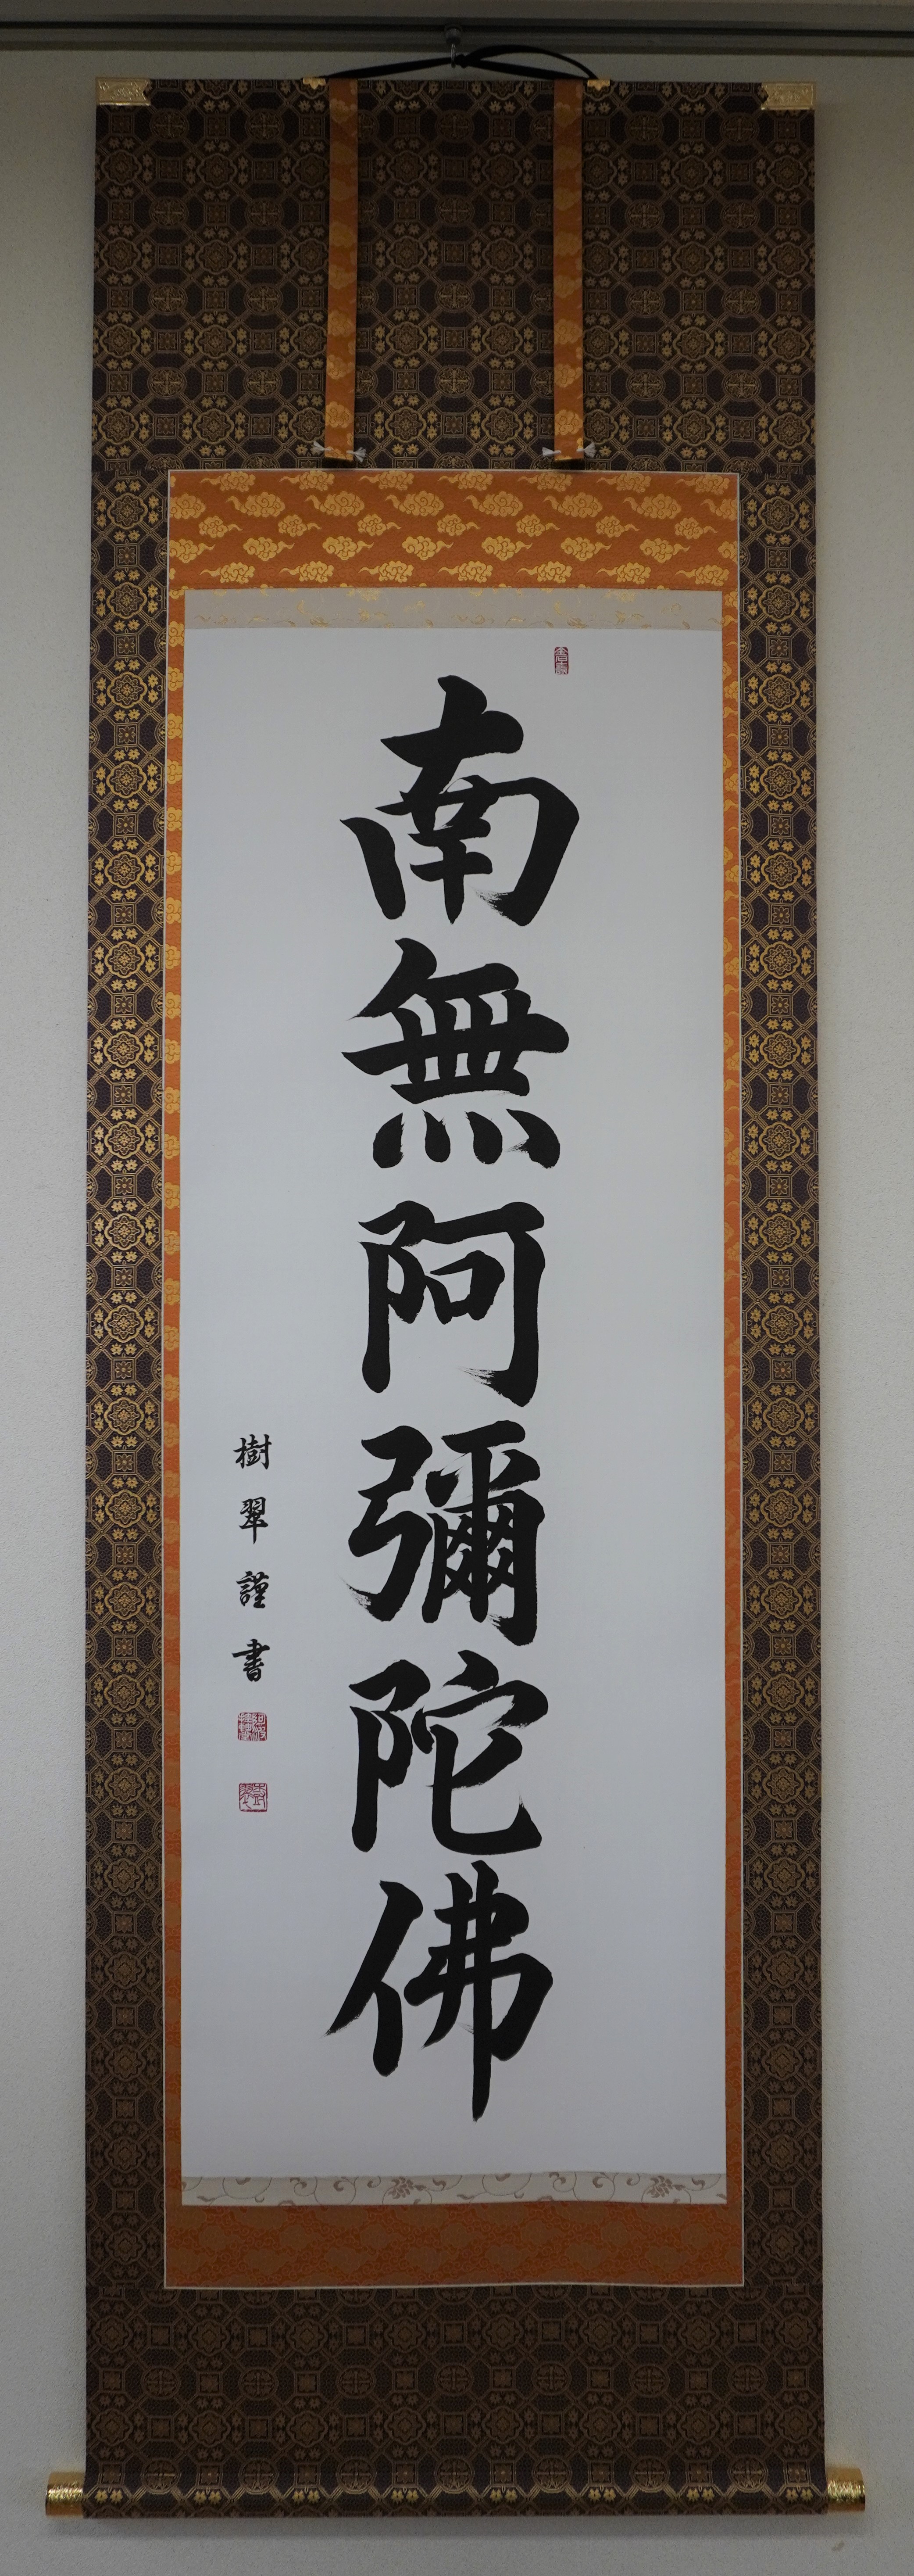 南無阿彌陀佛
樹翠謹書